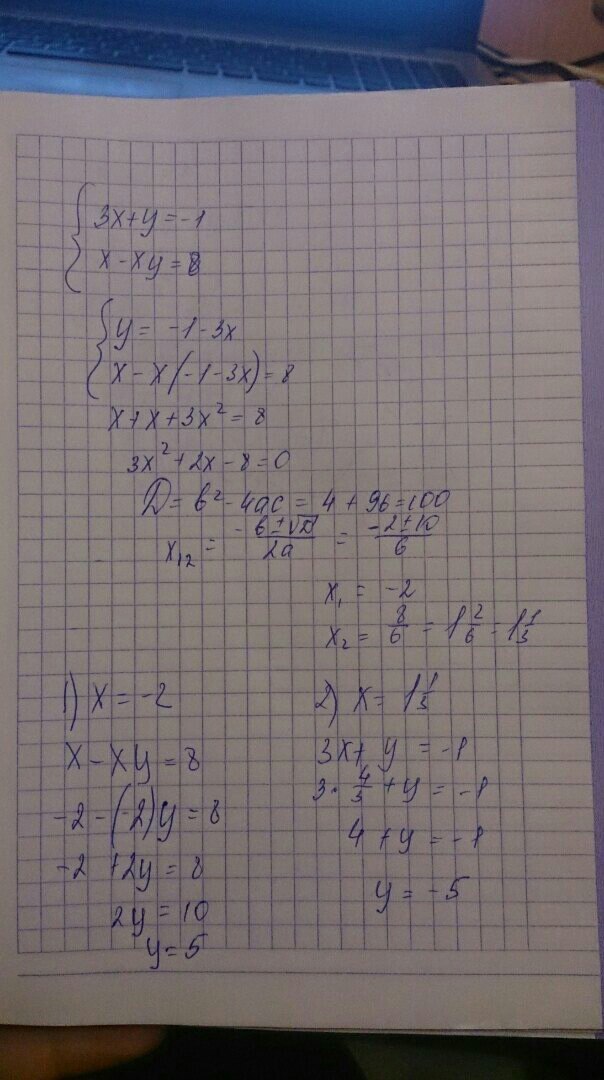 3x+y=-1
x-xy=8
y= -1-3x
x-x(-1-3x)=8
x+x+3x²=8
3x²+2x-8=0
D=b²-4ac=4+96=100
x₁₂ = -b±√D/2a = -2±10/6
x₁ = -2
x₂ = 8/6 = 1 2/6 = 1 1/3
1) x=-2
x-xy=8
-2-(-2)y=8
-2+2y=8
2y=10
y=5
2) x= 1 1/3
3x+y=-1
3·4/3+y=-1
4+y=-1
y=-5